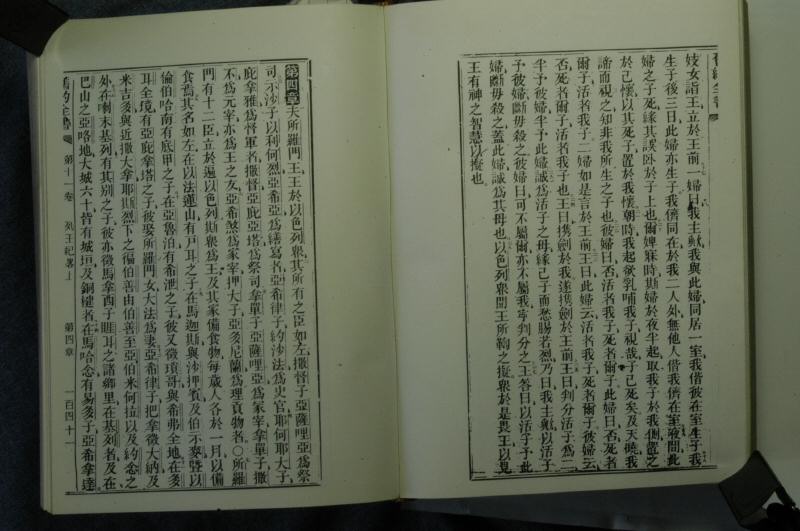 妓女詣王立於王前一婦曰我主歟我與此婦同居一室我偕彼在室生子我
生子後三日此婦亦生子我儕同在於我二人外無他人偕我儕在室夜間此
婦之子死緣其誤卧於子上也爾婢寐時斯婦於夜半起取我子於我側置之
於己懷以其死子置於我懷朝時我起欲乳哺我子視哉子已死矣及天曉我
諦而視之知非我所生之子也彼婦曰否活者我子死者爾子此婦曰否死者
爾子活者我子二婦如是言於王前王曰此云活者我子死者爾子彼婦云
否死者爾子活者我子也王曰携劍於我遂携劍於王前王曰判分活子為二
半予彼婦半予此婦誠為活子之母緣己子而愁腸若烈乃曰我主歟以活子
予彼婦斷毋殺之彼婦曰可不屬爾亦不屬我寧判分之王答曰以活子予此
婦斷毋殺之蓋此婦誠為其母也以色列衆聞王所鞫之擬衆於是畏王以見
王有神之智慧以擬也
第四章夫所羅門王王於以色列衆其所有之臣如左撒督子亞薩哩亞為祭
司示沙子以利何烈亞希亞為繕寫者亞希律子約沙法為史官耶何耶大子
庇拿雅為督軍者撒督亞庇亞塔為祭司拿單子亞薩哩亞為冢宰拿單子撒
不為元宰亦為王之友亞希煞為家宰押大子亞多尼蘭為理貢物者〇所羅
門有十二臣立於遍以色列斯衆為王及其家備食物每歲人各於一月以備
食焉其名如左在以法蓮山有戸耳之子在馬迦斯與沙押賓及伯示麥曁以
倫伯哈南有底甲之子在亞魯泊有希泄之子彼又徵瑣哥與希弗全地在多
耳全境有亞庇拿塔之子彼娶所羅門女大法為妻亞希律子把拿徵大納及
米吉多與近撒大拿耶斯烈下之伯善由伯善至亞伯米何拉以及約念之
外在喇末基列有其別之子彼亦徵馬拿西子睚耳之諸鄉里在基列者及在
巴山之亞咯地大城六十皆有城垣及銅楗者在馬哈念有易多子亞希拿達
舊約全書 第十一卷 列王紀畧上 第四章 一百四十一